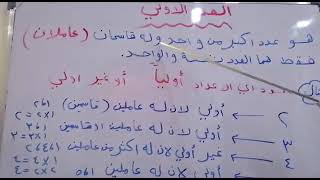 العدد الأولي
هو عدد أكبر من واحد وله قاسمان (عاملان)
فقط هما العدد نفسه والواحد.
أي الأعداد أولياً أو غير أولي
٢ ← أولي لأن له عاملين (قاسمين) ١و٢ ١×٢=٢
٣ ← أولي لأن له عاملين أو قاسمين ١و٣ ١×٣=٣
٤ ← غير أولي لأن له أكثر من عاملين ١و٢و٤ ١×٤=٤
أولي لأن له عاملين ١و٥ ٢×٢=٤